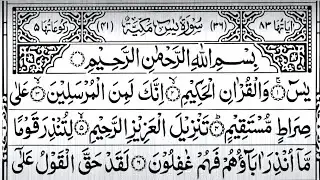 اٰیَاتُهَا ۸۳ (۳۶) سُوْرَةُ یٰسٓ مَكِّیَّةٌ (۴۱) رُكُوْعَاتُهَا ۵
بِسْمِ اللّٰهِ الرَّحْمٰنِ الرَّحِیْمِ
یٰسٓ ۚ﴿۱﴾ وَالْقُرْاٰنِ الْحَكِیْمِ ۙ﴿۲﴾ اِنَّكَ لَمِنَ الْمُرْسَلِیْنَ ۙ﴿۳﴾ عَلٰی
صِرَاطٍ مُّسْتَقِیْمٍ ؕ﴿۴﴾ تَنْزِیْلَ الْعَزِیْزِ الرَّحِیْمِ ۙ﴿۵﴾ لِتُنْذِرَ قَوْمًا
مَّاۤ اُنْذِرَ اٰبَآؤُهُمْ فَهُمْ غٰفِلُوْنَ ﴿۶﴾ لَقَدْ حَقَّ الْقَوْلُ عَلٰۤی